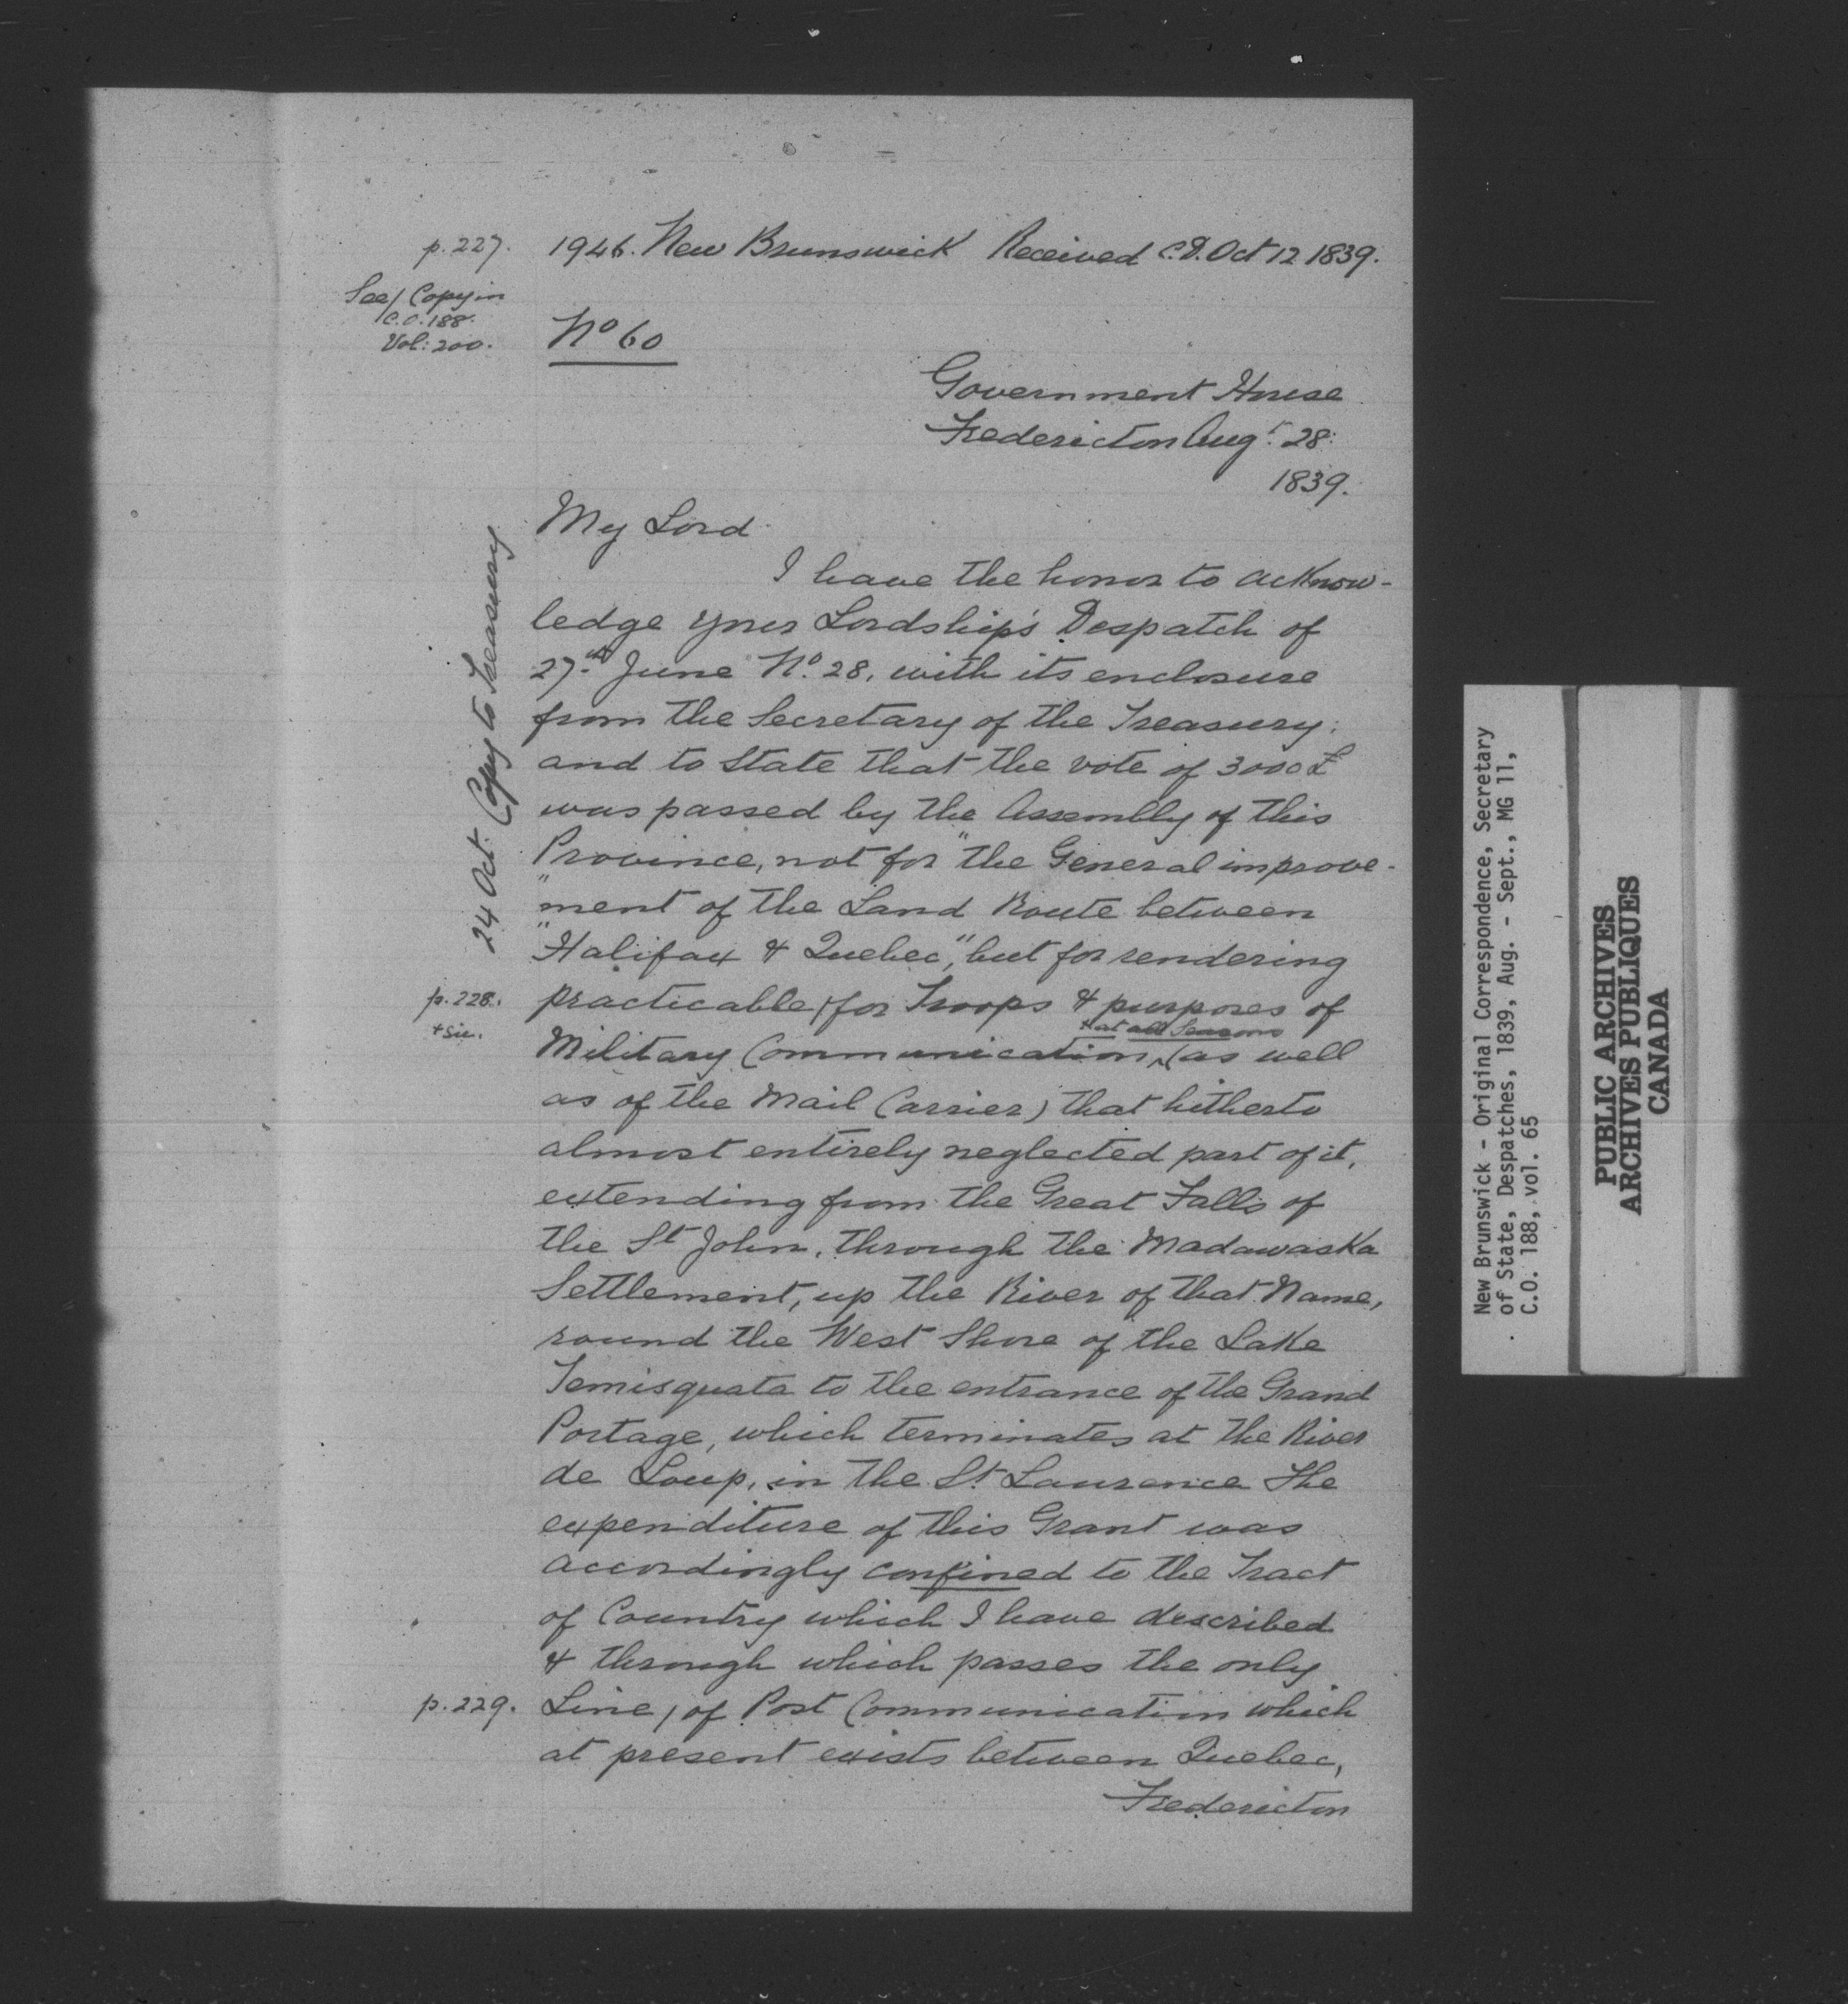 p. 227. 1946. New Brunswick Received C.D. Oct 12 1839.
See/ Copy in
C.O. 188.
Vol: 200.
No 60
Government House
Fredericton Augt. 28.
1839.
My Lord
24 Oct. Copy to Treasury
I have the honor to acknow-
ledge your Lordship's Despatch of
27th June No. 28, with its enclosure
from the Secretary of the Treasury;
and to State that the vote of 3000£
was passed by the Assembly of this
Province, not for "the General improve-
"ment of the Land Route between
"Halifax & Quebec", but for rendering
p. 228. practicable / for Troops & purposes of
+ sic. + at all Seasons
Military Communication, (as well
as of the Mail Carrier) that hitherto
almost entirely neglected part of it,
extending from the Great Falls of
the St John, through the Madawaska
Settlement, up the River of that Name,
round the West Shore of the Lake
Temisquata to the entrance of the Grand
Portage, which terminates at the River
de Loup, in the St. Laurence The
expenditure of this Grant was
accordingly confined to the Tract
of Country which I have described
& through which passes the only
p. 229. Line / of Post Communication which
at present exists between Quebec,
Fredericton
New Brunswick - Original Correspondence, Secretary
of State, Despatches, 1839, Aug. - Sept., MG 11,
C.O. 188, vol. 65
PUBLIC ARCHIVES
ARCHIVES PUBLIQUES
CANADA